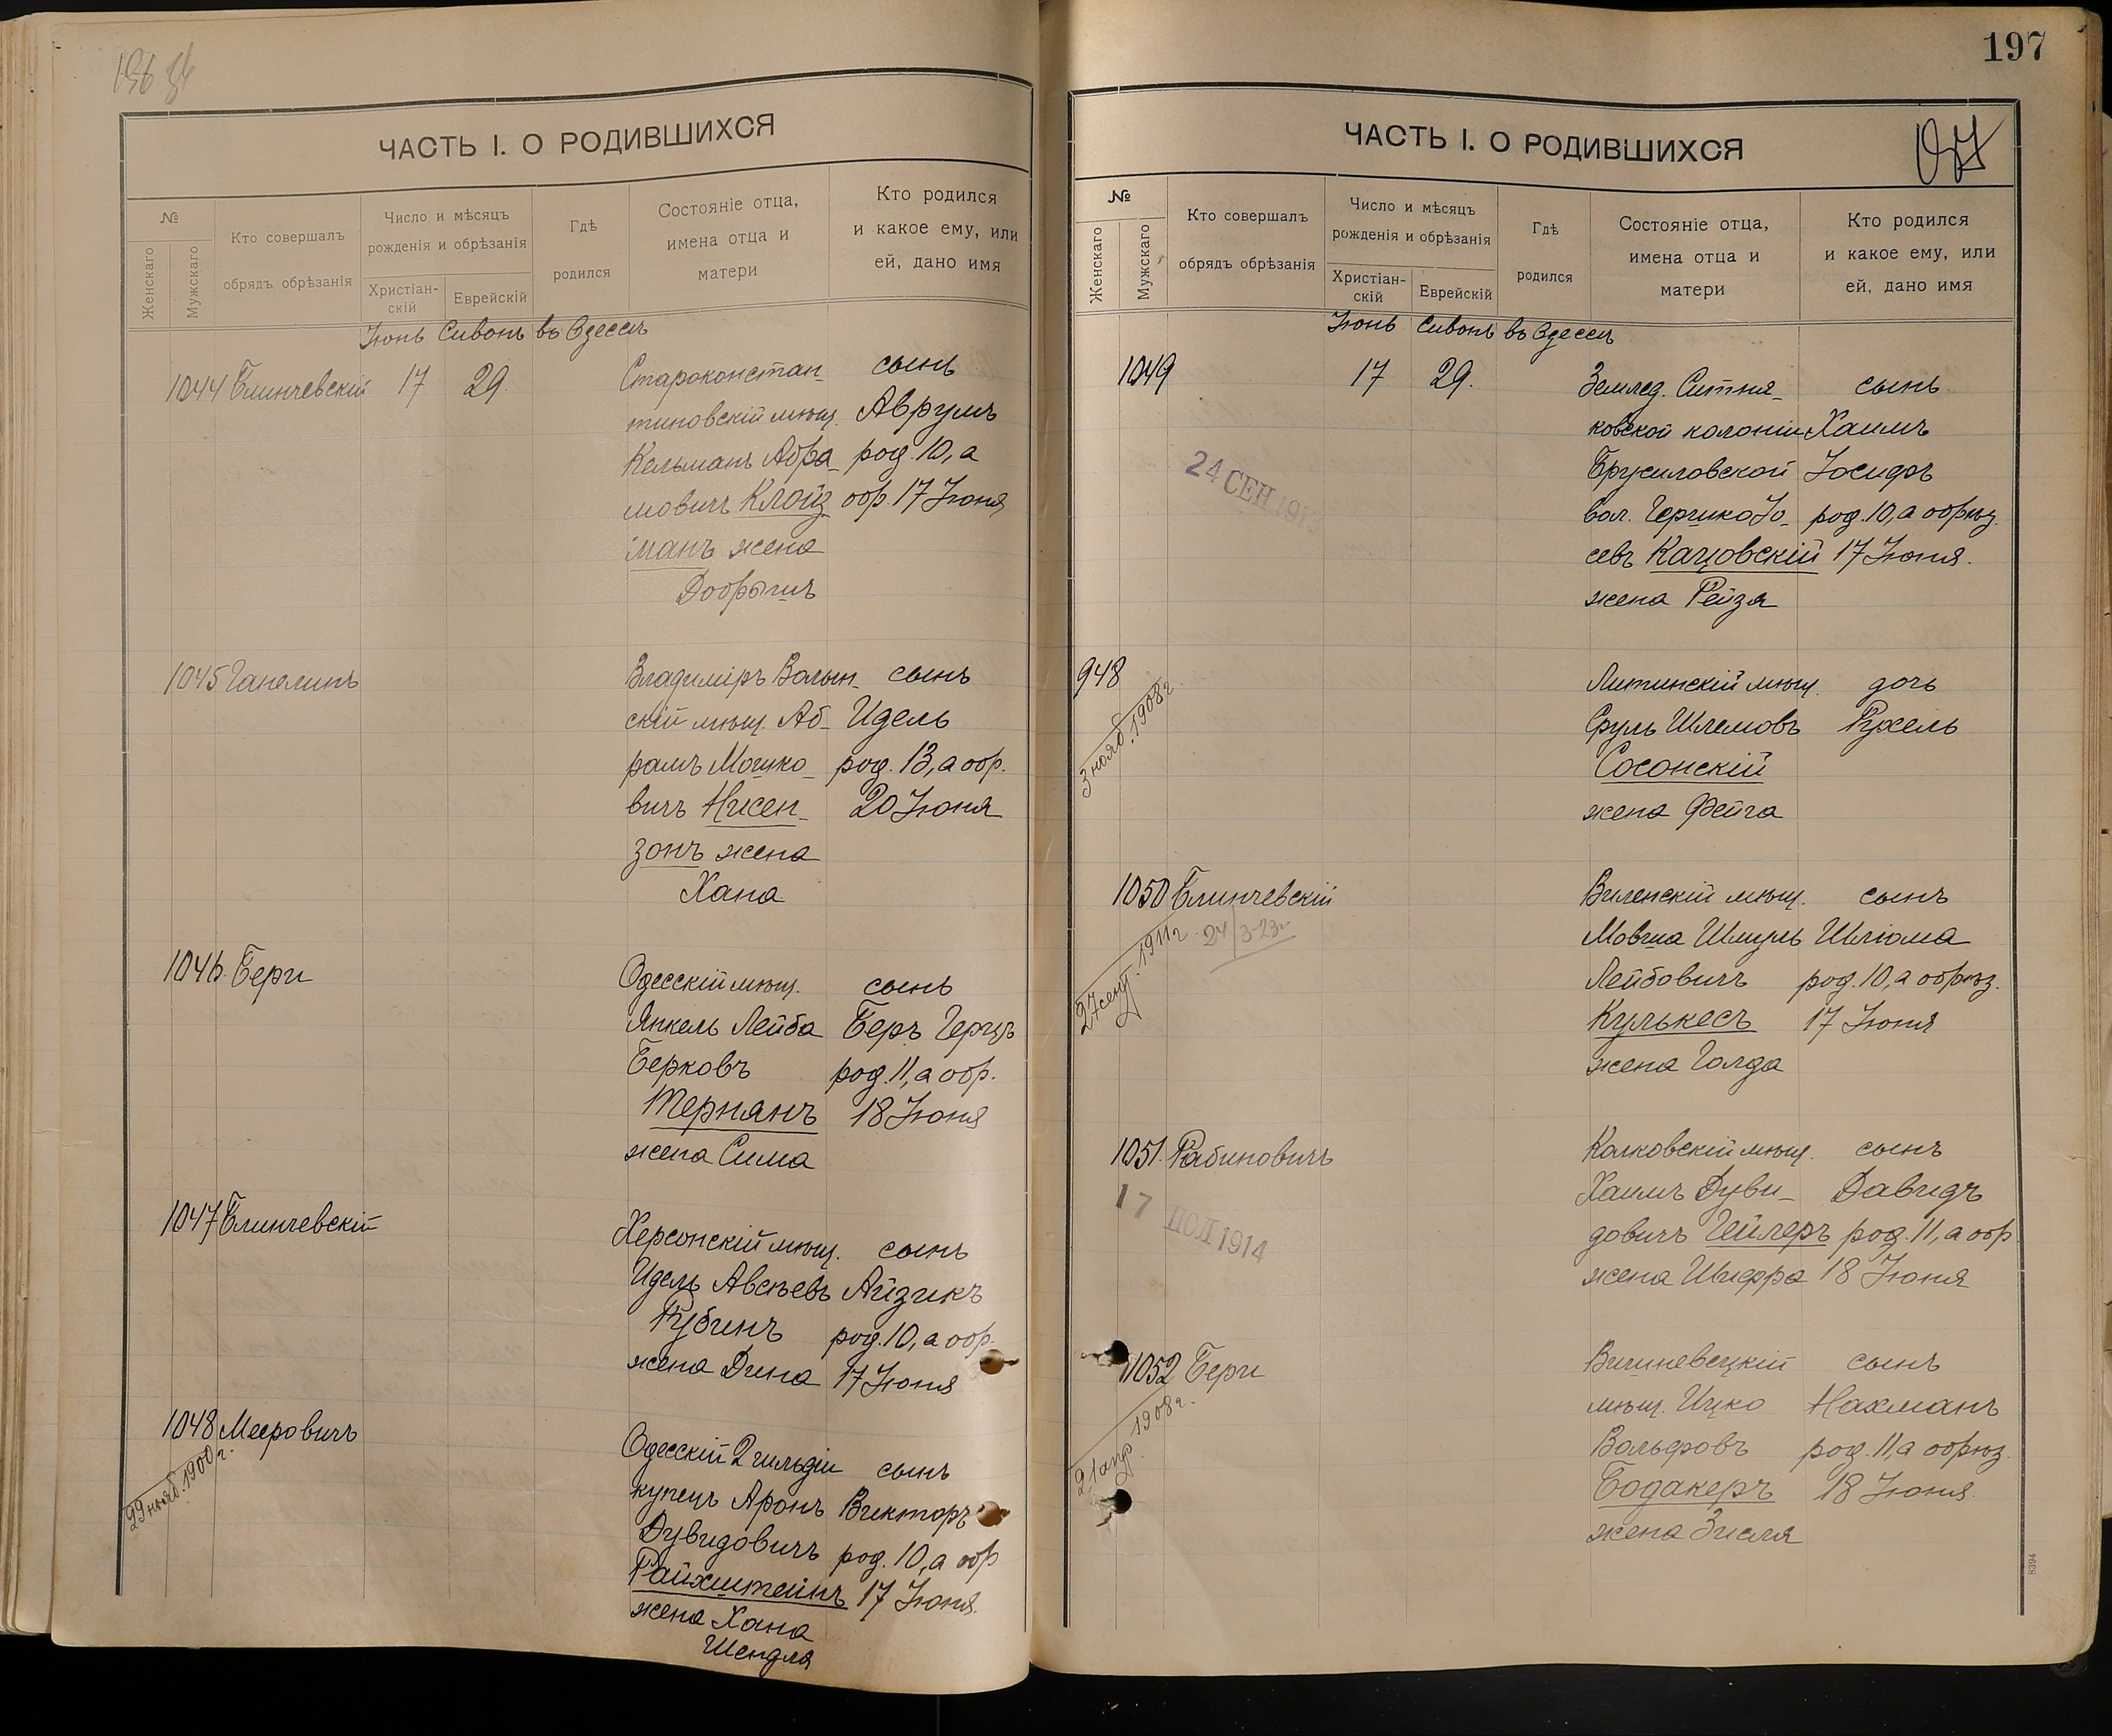 ЧАСТЬ I. О РОДИВШИХСЯ
№
Женскаго
Мужскаго
Кто совершалъ
обрядъ обрѣзанія
Число и мѣсяцъ
рожденія и обрѣзанія
Христіан-
скій
Еврейскій
Гдѣ
родился
Состояніе отца,
имена отца и
матери
Кто родился
и какое ему, или
ей, дано имя
Іюнь Сивонъ въ Одессѣ
1044 Блинчевскій 17 29. Староконстан- сынъ
тиновскій мѣщ. Аврумъ
Кельманъ Абра- род. 10, а
мовичъ Клойз обр. 17 Іюня
манъ жена
Добрышъ
1045 Ганелинъ Владиміръ Волын- сынъ
скій мѣщ. Аб- Идель
рамъ Мошко- род. 13, а обр.
вичъ Нисен- 20 Іюня
зонъ жена
Хана
1046. Бери Одесскій мѣщ. сынъ
Янкель Лейба Беръ Герцъ
Берковъ род. 11, а обр.
Тернянъ 18 Іюня
жена Сима
1047 Блинчевскій Херсонскій мѣщ. сынъ
Идель Авсѣевъ Айзикъ
Рубинъ род. 10, а обр.
жена Дина 17 Іюня
1048 Мееровичъ Одесскій 2 гильдіи сынъ
29 нояб. 1900 г.
купецъ Аронъ Викторъ
Дувидовичъ род. 10, а обр
Райхштейнъ 17 Іюня.
жена Хана
Шендля
197
ЧАСТЬ I. О РОДИВШИХСЯ
№
Женскаго
Мужскаго
Кто совершалъ
обрядъ обрѣзанія
Число и мѣсяцъ
рожденія и обрѣзанія
Христіан-
скій
Еврейскій
Гдѣ
родился
Состояніе отца,
имена отца и
матери
Кто родился
и какое ему, или
ей, дано имя
Іюнь Сивонъ въ Одессѣ
1049 17 29. Землед. Ситня- сынъ
ковской колоніи Хаимъ
Брусиловской Іосифъ
24 СЕН
вол. Гершко Іо- род. 10, а обрѣз.
севъ Кацовскій 17 Іюня.
жена Рейзя
948 Литинскій мѣщ. дочь
3 нояб. 1908 г.
Сруль Шлемовъ Рухель
Сосонскій
жена Фейга
1050 Блинчевскій Виленскій мѣщ. сынъ
27 сент. 1911 г. 24/3-23г
Мовша Шмуль Шліома
Лейбовичъ род. 10, а обрѣз.
Кулькесъ 17 Іюня
жена Голда
1051. Рабиновичъ Колковскій мѣщ. сынъ
Хаимъ Дуви- Давидъ
17 ІЮЛ 1914
довичъ Гейлеръ род. 11, а обр.
жена Шифра 18 Іюня
1052 Бери Вишневецкій сынъ
21 апр. 1908 г.
мѣщ. Ицко Нахманъ
Вольфовъ род. 11, а обрѣз.
Бодакеръ 18 Іюня.
жена Зисля
8394